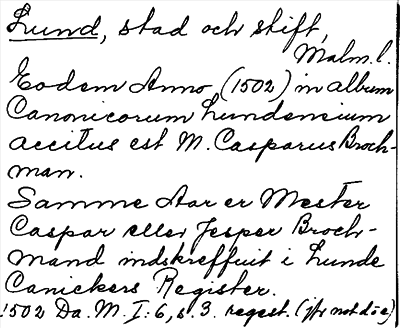 Lund, stad och stift,
Malm. l.
Eodem Anno (1502) in album
Canonicorum Lundensium
accitus est M. Casparus Broch-
man.
Samme Aar er Mester
Caspar eller Jesper Broch-
mand indskreffuit i Lunde
Canickers Register.
1502 Da. M. I:6, s. 3. regest. (jfr not d o e)